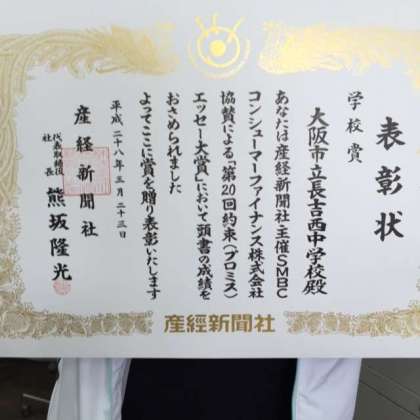 表彰状
学校賞
大阪市立長吉西中学校殿
あなたは産経新聞社主催SMBC
コンシューマーファイナンス株式会社
協賛による「第20回約束(プロミス)
エッセー大賞」において頭書の成績を
おさめられました
よってここに賞を贈り表彰いたします
平成二十八年三月二十三日
産経新聞社
代表取締役
社長
熊坂隆光
産經新聞社